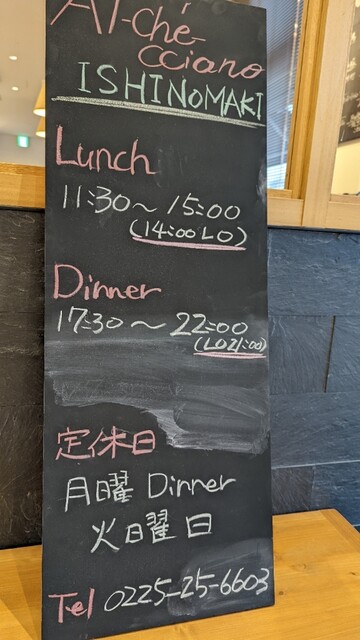 Al-ché-
cciano
ISHINOMAKI
Lunch
11:30〜15:00
(14:00 LO)
Dinner
17:30〜22:00
(LO21:00)
定休日
月曜 Dinner
火曜日
Tel 0225-25-6603